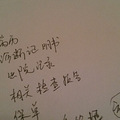 病历
诊断证明书
出院记录
相关检查报告
保单